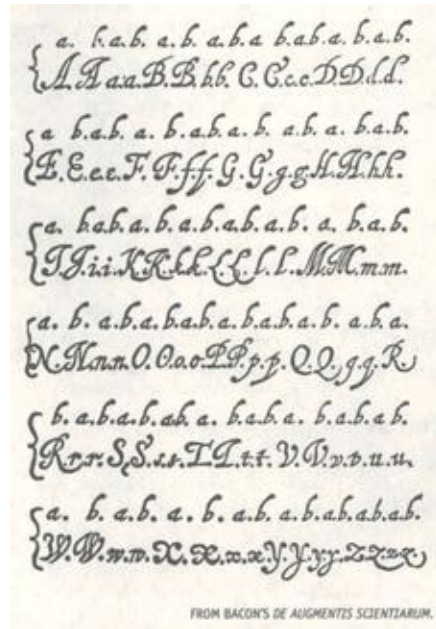 a. b.a.b. a.b. a.b.a b.a.b.a. b.a.b.
A.A.a.a.B.B.b.b. C.C.c.c.D.D.d.d.
a b.a.b. a. b.a.b.a.b. a.b.a. b.a.b.
E.E.e.e.F.F.f.f.G.G.g.g.H.H.h.h.
a. b.a.b.a.b.a.b.a.b.a.b. a. b.a.b.
I.I.i.i.K.K.k.k.L.L.l.l.M.M.m.m.
a. b. a.b.a.b.a.b.a.b.a.b. a.b.a.
N.N.n.n.O.O.o.o.P.P.p.p.Q.Q.q.q.R.
b. a.b.a.b.a.b a. b.a.b.a. b.a.b.a b.
R.r.r.S.S.s.s.T.T.t.t.V.V.v.v.u.u.
a. b. a.b. a. b. a.b. a.b.a.b.a.b.a.b.
W.W.w.w.X.X.x.x.Y.Y.y.y.Z.Z.z.z.
FROM BACON'S DE AUGMENTIS SCIENTIARUM.